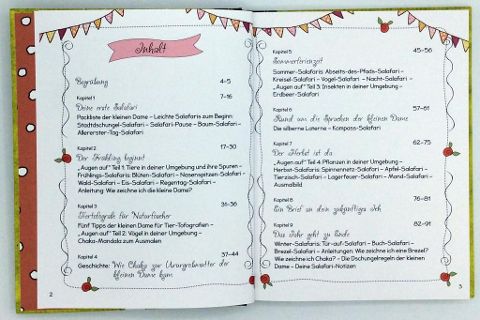 Inhalt
Begrüßung 4–5
Kapitel 1 7–16
Deine erste Salafari
Packliste der kleinen Dame – Leichte Salafaris zum Beginn:
Stadtdschungel-Salafari – Salafari-Pause – Baum-Salafari –
Allererster-Tag-Salafari
Kapitel 2 17–30
Der Frühling beginnt
„Augen auf“ Teil 1: Tiere in deiner Umgebung und ihre Spuren –
Frühlings-Salafaris: Blüten-Salafari – Nasenspitzen-Salafari –
Wald-Salafari – Eis-Salafari – Regentag-Salafari –
Anleitung: Wie zeichne ich die kleine Dame?
Kapitel 3 31–36
Tierfotografie für Naturforscher
Fünf Tipps der kleinen Dame für Tier-Fotografien –
„Augen auf“ Teil 2: Vögel in deiner Umgebung –
Chaka-Mandala zum Ausmalen
Kapitel 4 37–44
Geschichte: Wie Chaka zur Ururgroßmutter der
kleinen Dame kam
2
Kapitel 5 45–56
Sommerferienzeit
Sommer-Salafaris: Abseits-des-Pfads-Salafari –
Kreisel-Salafari – Vogel-Salafari – Nacht-Salafari –
„Augen auf“ Teil 3: Insekten in deiner Umgebung –
Erdbeer-Salafari
Kapitel 6 57–61
Rund um die Sprachen der kleinen Dame
Die silberne Laterne – Kompass-Salafari
Kapitel 7 62–75
Der Herbst ist da
„Augen auf“ Teil 4: Pflanzen in deiner Umgebung –
Herbst-Salafaris: Spinnennetz-Salafari – Apfel-Salafari –
Tierzisch-Salafari – Lagerfeuer-Salafari – Mond-Salafari –
Ausmalbild
Kapitel 8 76–81
Ein Brief an dein zukünftiges Ich
Kapitel 9 82–91
Das Jahr geht zu Ende
Winter-Salafaris: Tür-auf-Salafari – Buch-Salafari –
Brezel-Salafari – Anleitungen: Wie zeichne ich eine Brezel?
Wie zeichne ich Chaka? – Die Dschungelregeln der kleinen
Dame – Deine Salafari-Notizen
3